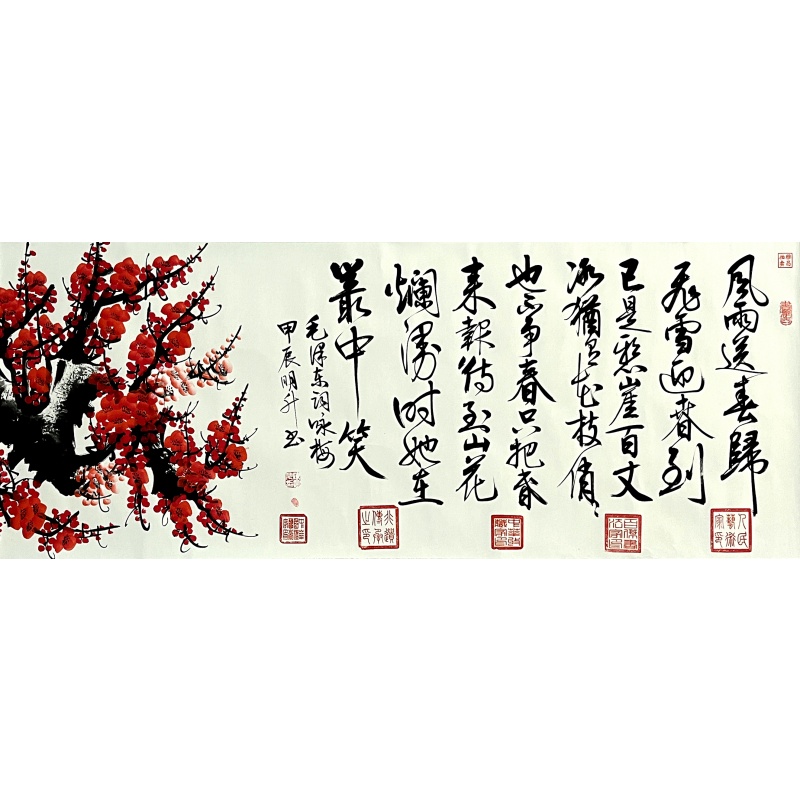 風雨送春歸
飛雪迎春到
已是懸崖百丈
冰猶有花枝俏俏
也不爭春只把春
來報待到山花
爛漫時她在
叢中笑
毛澤东词咏梅
甲辰明升书
人民藝術家印